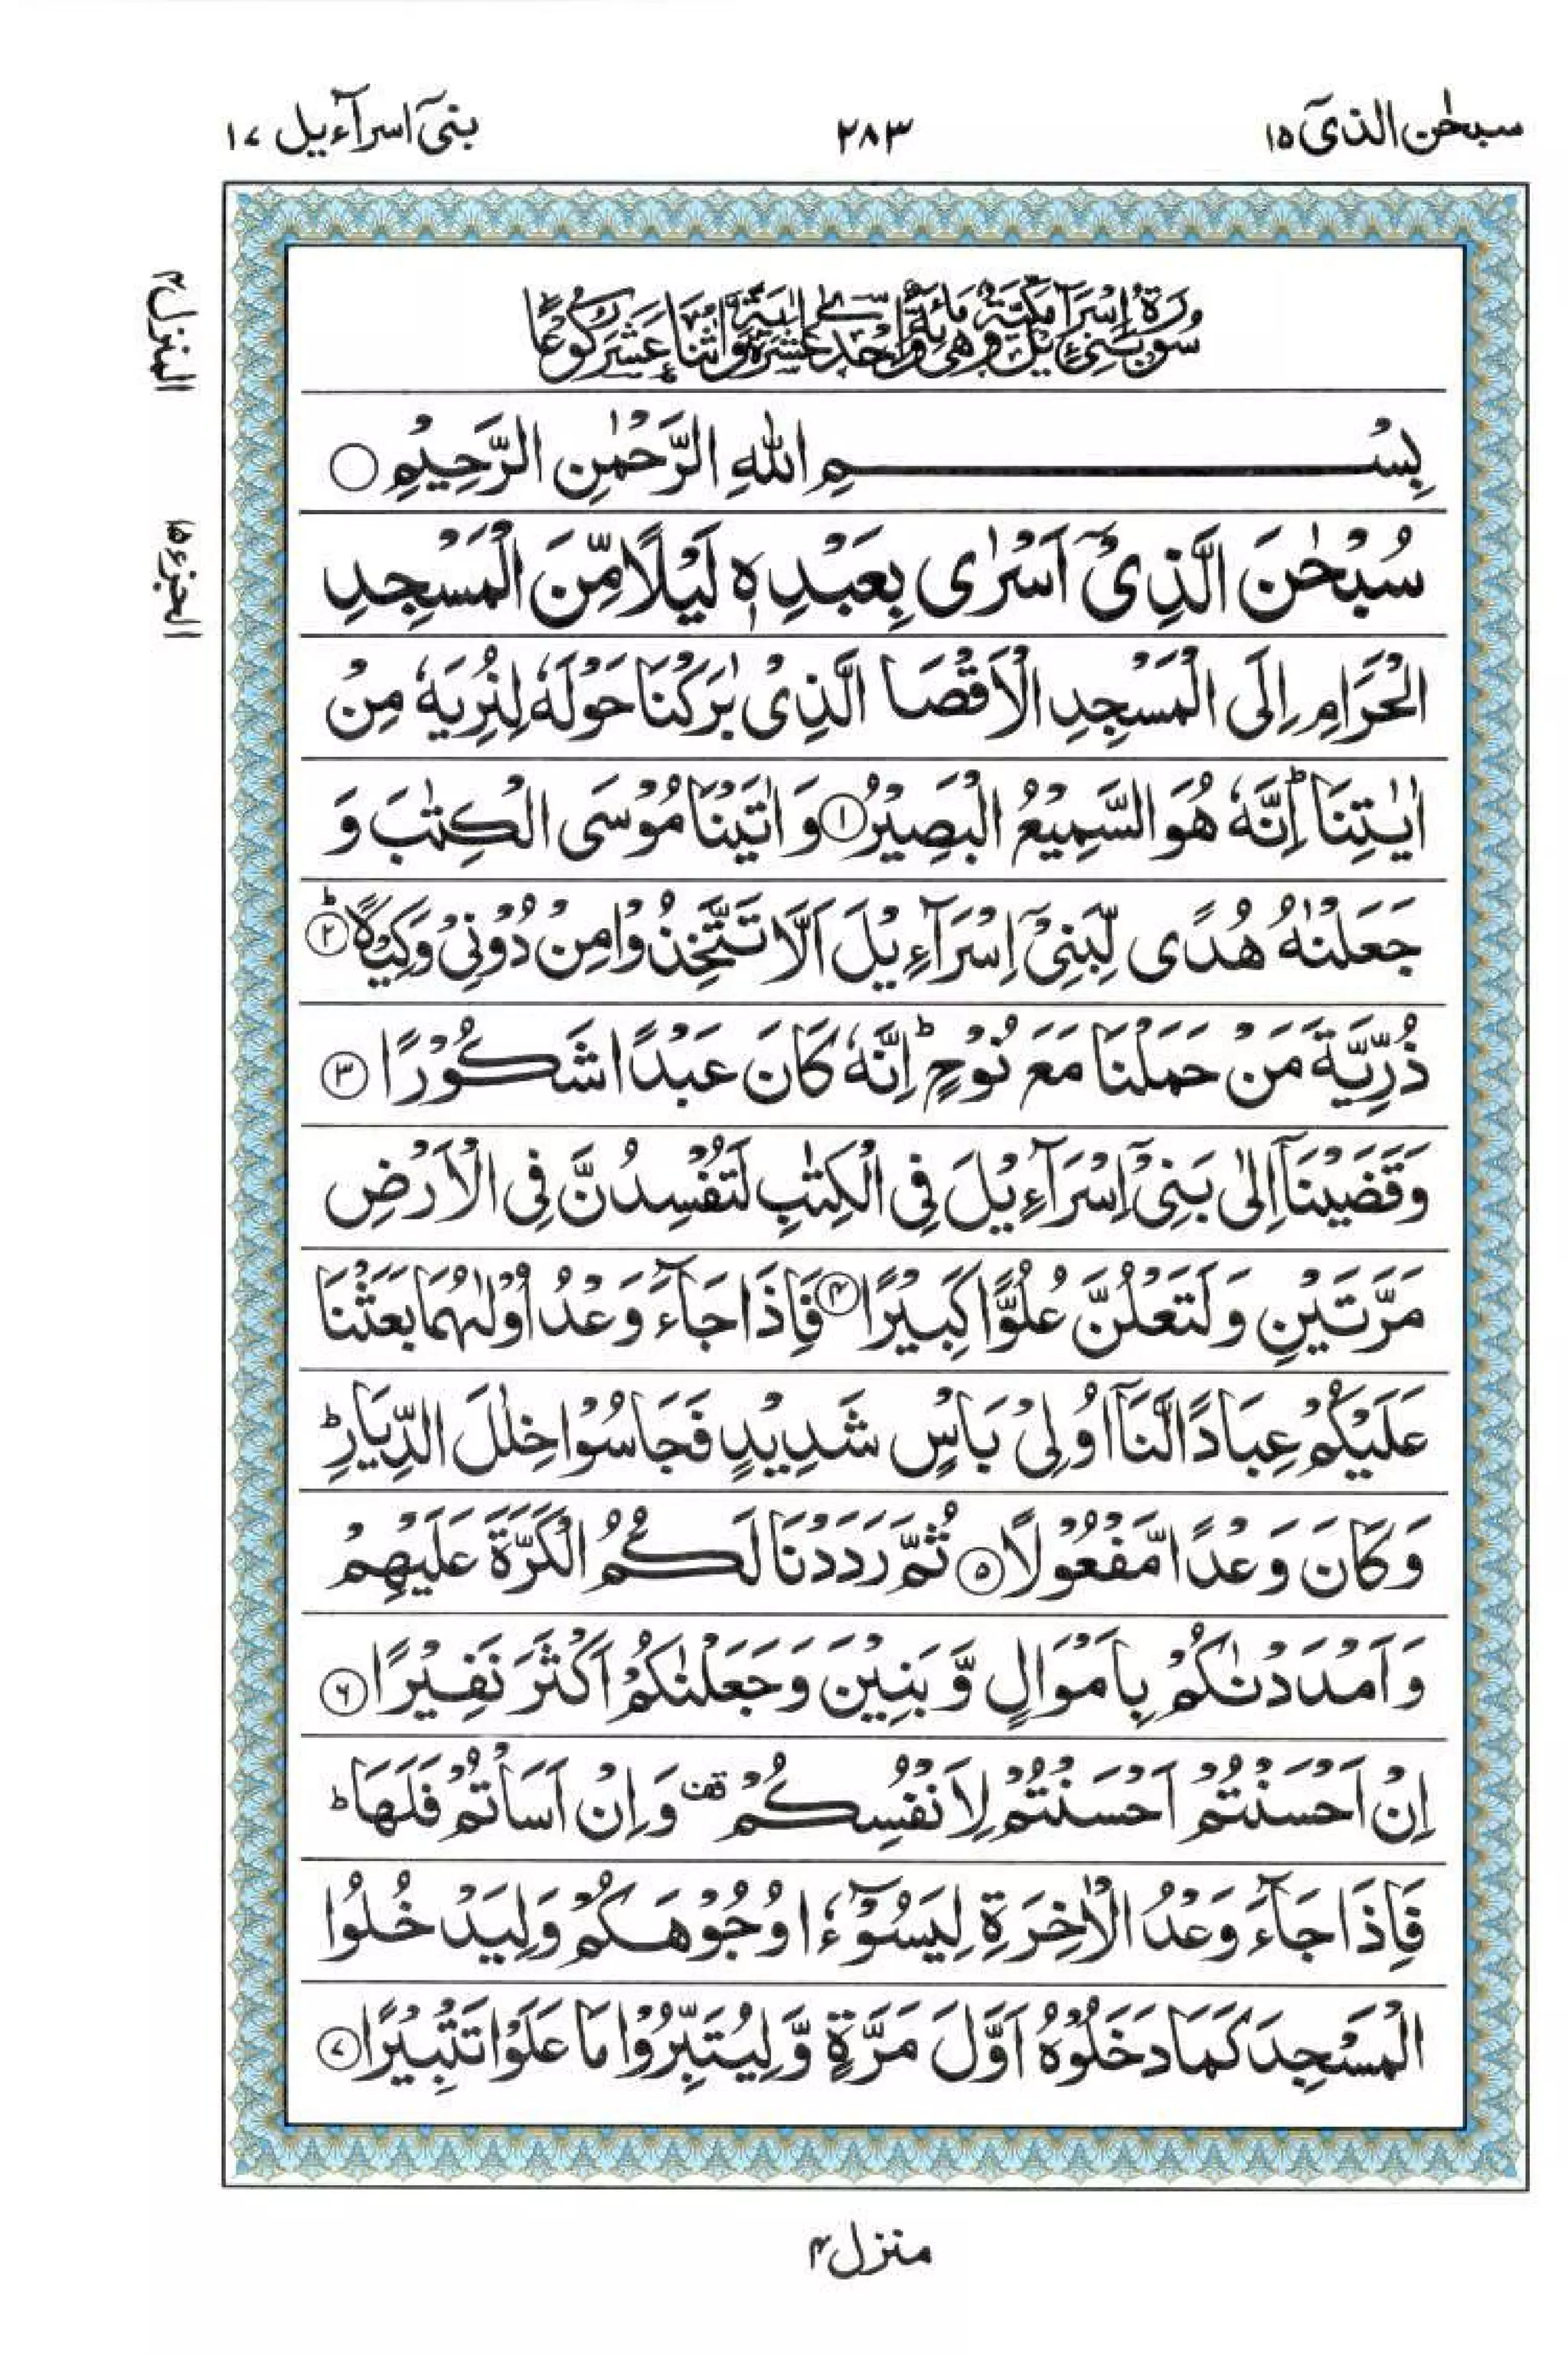 سبحٰن الذیٓ ۱۵
۲۸۳
بنیٓ اسرآءیل ۱۷
المنزل ۴
الجزء ۱۵
سُوۡرَةُ بَنِيۡۤ اِسۡرَآءِيۡلَ مَكِّيَّةٌ وَّهِيَ مِائَةٌ وَّاِحۡدٰى عَشَرَةَ اٰيَةً وَّاثۡنَا عَشَرَ رُكُوۡعًا
بِسۡمِ اللّٰهِ الرَّحۡمٰنِ الرَّحِيۡمِ
سُبۡحٰنَ الَّذِىۡۤ اَسۡرٰى بِعَبۡدِهٖ لَيۡلًا مِّنَ الۡمَسۡجِدِ
الۡحَـرَامِ اِلَى الۡمَسۡجِدِ الۡاَقۡصَا الَّذِىۡ بٰرَكۡنَا حَوۡلَهٗ لِنُرِيَهٗ مِنۡ
اٰيٰتِنَا‌ ؕ اِنَّهٗ هُوَ السَّمِيۡعُ الۡبَصِيۡرُ ۱ وَاٰتَيۡنَا مُوۡسَى الۡـكِتٰبَ وَ
جَعَلۡنٰهُ هُدًى لِّبَنِىۡۤ اِسۡرَآءِيۡلَ اَلَّا تَتَّخِذُوۡا مِنۡ دُوۡنِىۡ وَكِيۡلًا ؕ ۲
ذُرِّيَّةَ مَنۡ حَمَلۡنَا مَعَ نُوۡحٍ‌ ؕ اِنَّهٗ كَانَ عَبۡدًا شَكُوۡرًا ۳
وَقَضَيۡنَاۤ اِلٰى بَنِىۡۤ اِسۡرَآءِيۡلَ فِى الۡكِتٰبِ لَـتُفۡسِدُنَّ فِى الۡاَرۡضِ
مَرَّتَيۡنِ وَلَتَعۡلُنَّ عُلُوًّا كَبِيۡرًا ۴ فَاِذَا جَآءَ وَعۡدُ اُوۡلٰٮهُمَا بَعَثۡنَا
عَلَيۡكُمۡ عِبَادًا لَّنَاۤ اُولِىۡ بَاۡسٍ شَدِيۡدٍ فَجَاسُوۡا خِلٰلَ الدِّيَارِ ؕ
وَكَانَ وَعۡدًا مَّفۡعُوۡلًا ۵ ثُمَّ رَدَدۡنَا لَـكُمُ الۡكَرَّةَ عَلَيۡهِمۡ
وَاَمۡدَدۡنٰـكُمۡ بِاَمۡوَالٍ وَّبَنِيۡنَ وَجَعَلۡنٰكُمۡ اَكۡثَرَ نَفِيۡرًا ۶
اِنۡ اَحۡسَنۡتُمۡ اَحۡسَنۡتُمۡ لِاَنۡفُسِكُمۡ قف وَاِنۡ اَسَاۡتُمۡ فَلَهَا ؕ
فَاِذَا جَآءَ وَعۡدُ الۡاٰخِرَةِ لِيَسُوۡٓءٗا وُجُوۡهَكُمۡ وَلِيَدۡخُلُوا
الۡمَسۡجِدَ كَمَا دَخَلُوۡهُ اَوَّلَ مَرَّةٍ وَّلِيُتَبِّرُوۡا مَا عَلَوۡا تَتۡبِيۡرًا ۷
منزل ۴